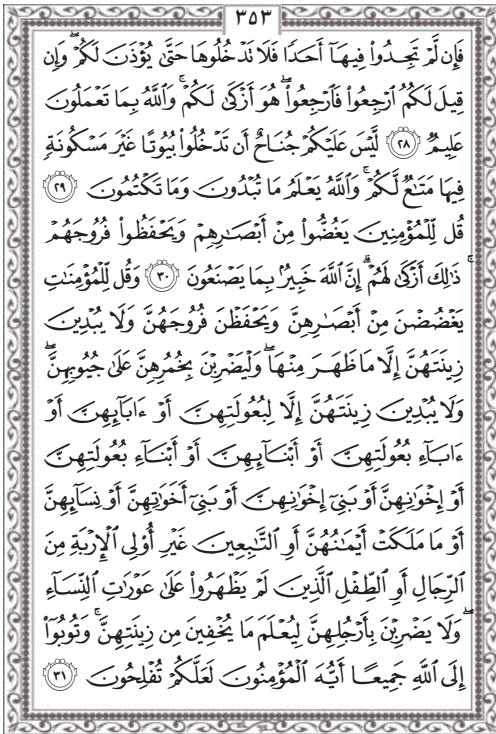 ٣٥٣
فَإِن لَّمْ تَجِدُوا۟ فِيهَآ أَحَدًا فَلَا تَدْخُلُوهَا حَتَّىٰ يُؤْذَنَ لَكُمْ ۖ وَإِن
قِيلَ لَكُمُ ٱرْجِعُوا۟ فَٱرْجِعُوا۟ ۖ هُوَ أَزْكَىٰ لَكُمْ ۚ وَٱللَّهُ بِمَا تَعْمَلُونَ
عَلِيمٌ ٢٨ لَّيْسَ عَلَيْكُمْ جُنَاحٌ أَن تَدْخُلُوا۟ بُيُوتًا غَيْرَ مَسْكُونَةٍ
فِيهَا مَتَـٰعٌ لَّكُمْ ۚ وَٱللَّهُ يَعْلَمُ مَا تُبْدُونَ وَمَا تَكْتُمُونَ ٢٩
قُل لِّلْمُؤْمِنِينَ يَغُضُّوا۟ مِنْ أَبْصَـٰرِهِمْ وَيَحْفَظُوا۟ فُرُوجَهُمْ
ۚ ذَٰلِكَ أَزْكَىٰ لَهُمْ ۗ إِنَّ ٱللَّهَ خَبِيرٌۢ بِمَا يَصْنَعُونَ ٣٠ وَقُل لِّلْمُؤْمِنَـٰتِ
يَغْضُضْنَ مِنْ أَبْصَـٰرِهِنَّ وَيَحْفَظْنَ فُرُوجَهُنَّ وَلَا يُبْدِينَ
زِينَتَهُنَّ إِلَّا مَا ظَهَرَ مِنْهَا ۖ وَلْيَضْرِبْنَ بِخُمُرِهِنَّ عَلَىٰ جُيُوبِهِنَّ ۖ
وَلَا يُبْدِينَ زِينَتَهُنَّ إِلَّا لِبُعُولَتِهِنَّ أَوْ ءَابَآئِهِنَّ أَوْ
ءَابَآءِ بُعُولَتِهِنَّ أَوْ أَبْنَآئِهِنَّ أَوْ أَبْنَآءِ بُعُولَتِهِنَّ
أَوْ إِخْوَٰنِهِنَّ أَوْ بَنِىٓ إِخْوَٰنِهِنَّ أَوْ بَنِىٓ أَخَوَٰتِهِنَّ أَوْ نِسَآئِهِنَّ
أَوْ مَا مَلَكَتْ أَيْمَـٰنُهُنَّ أَوِ ٱلتَّـٰبِعِينَ غَيْرِ أُو۟لِى ٱلْإِرْبَةِ مِنَ
ٱلرِّجَالِ أَوِ ٱلطِّفْلِ ٱلَّذِينَ لَمْ يَظْهَرُوا۟ عَلَىٰ عَوْرَٰتِ ٱلنِّسَآءِ
ۖ وَلَا يَضْرِبْنَ بِأَرْجُلِهِنَّ لِيُعْلَمَ مَا يُخْفِينَ مِن زِينَتِهِنَّ ۚ وَتُوبُوٓا۟
إِلَى ٱللَّهِ جَمِيعًا أَيُّهَ ٱلْمُؤْمِنُونَ لَعَلَّكُمْ تُفْلِحُونَ ٣١